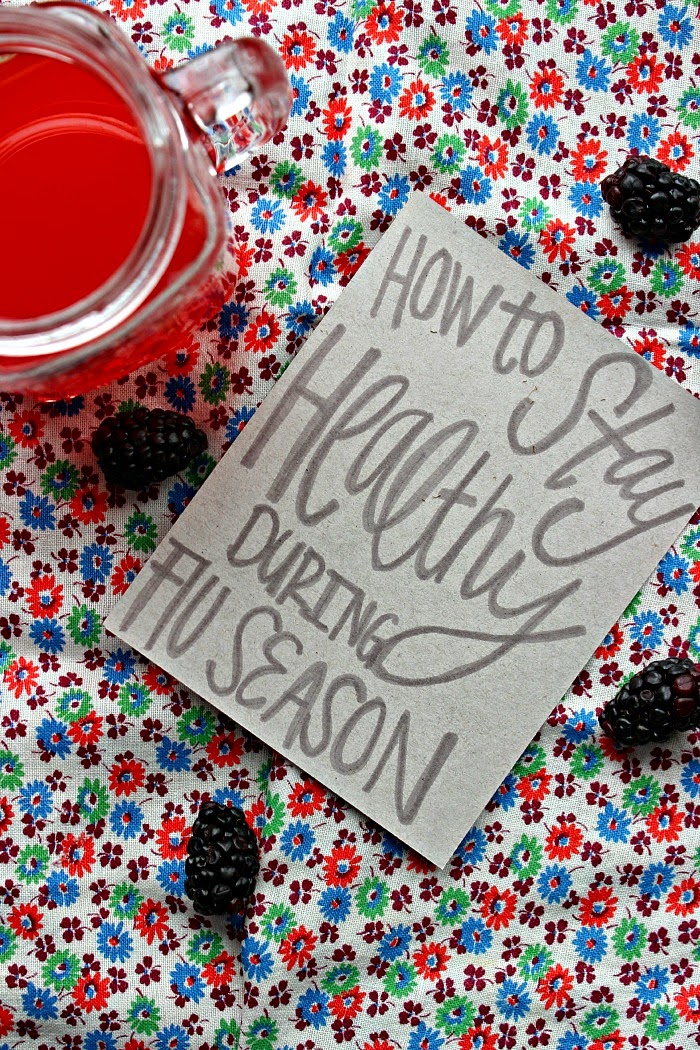 HOW to
Stay
Healthy
DURING
FlU SEASON